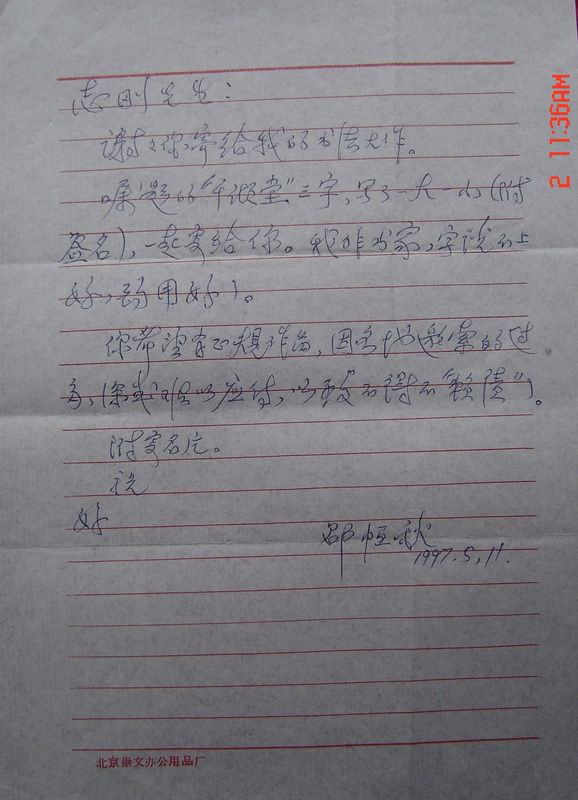 志刚先生：
谢谢你寄给我的书法大作。
嘱题的“千澂堂”三字，写了一大一小（附
签名），一起寄给你。我非书家，字说不上
好，药用好）。
你希望有正规作品，因各地题索的过
多，（实无法以应付，以致不得不“赖债”）。
附寄名片。
祝
好
邵恒秋
1997.5.11.
北京崇文办公用品厂
2 11:36AM